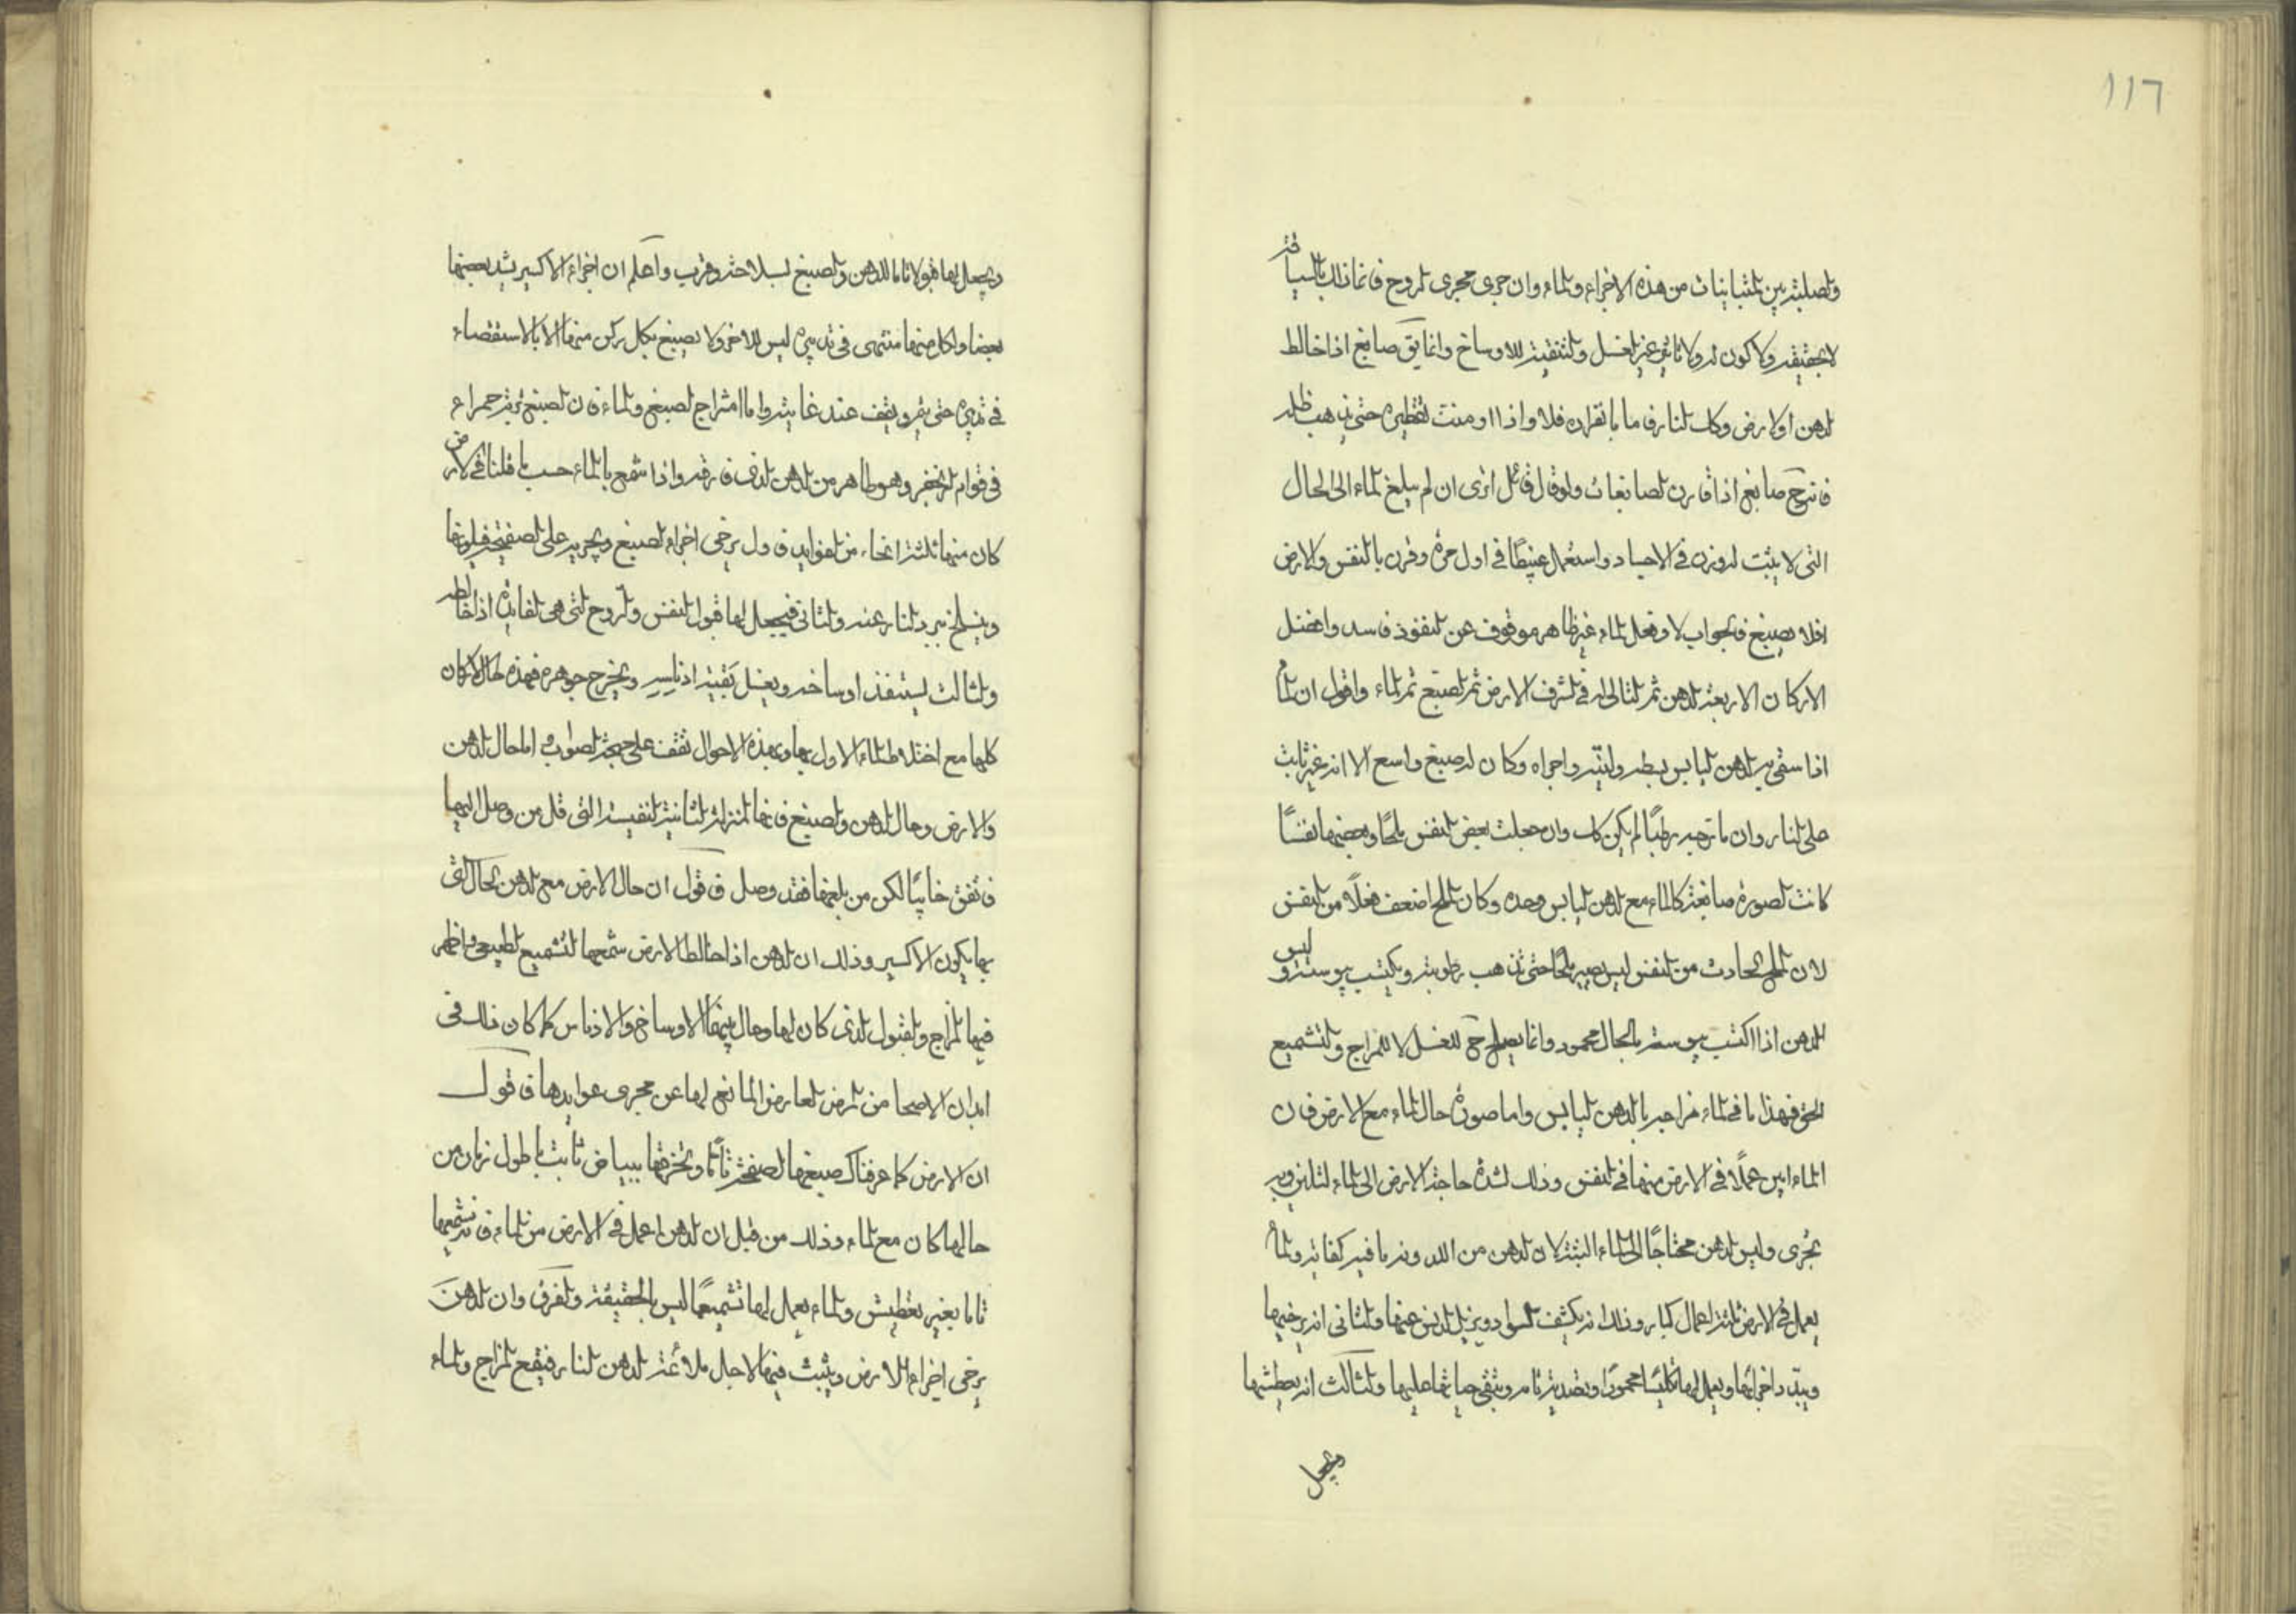 ١١٦
والصلبة بين المتباينات من هذه الاجزاء والماء وان جرى مجرى الروح فانما ذلك بالسياقة
لا بحقيقة ولا كون له ولا تاثير غير الغسل والتنقية للاوساخ وانما يق صابغ اذا خالط
الدهن او الارض وكك النار فاما بانفراده فلا واذا اومنت تقطيره حتى يذهب ظله
فانه ح صابغ اذا قارن الصابغات ولو قال قائل اترى ان لم يبلغ الماء الى الحال
التى لا يثبت له وزن فى الاجساد واستعمل عبيطًا فى اول مرة وقرن بالنفس والارض
افلا يصبغ فالجواب لا وفعل الماء غير ظاهر موقوف عن النفوذ فاسد وافضل
الاركان الاربعة الدهن ثم التالى له فى الشرف الارض ثم الصبغ ثم الماء واقول ان الماء
اذا سقى به الدهن اليابس بطه ولينه واجراه وكان له صبغ واسع الا انه غير ثابت
على النار وان مازجه رطبًا لم يكن كك وان جعلت بعض النفس ملحًا وبعضها نفسًا
كانت الصورة صابغة كالماء مع الدهن اليابس وحده وكان الملح اضعف فعلًا من النفس
لان الملح الحادث من النفس ليس يصير ملحًا حتى تذهب رطوبته ويكتسب يبوسته وليس
الدهن اذا اكتسب يبوسته بالحال محمود وانما يصلح ح للغسل لا للمزاج والتشميع
الحق فهذا ما فى الماء مزاجه بالدهن اليابس واما صورة حال الماء مع الارض فان
الماء ابين عملًا فى الارض منها فى النفس وذلك لشدة حاجة الارض الى الماء لتلين وبه
تجرى وليس الدهن محتاجًا الى الماء البتة لان الدهن من اللدونة ما فيه كفاية والماء
يعمل فى الارض ثلثة اعمال كبار وذلك انه يكشف السواد ويزيل الدنس عنها والثانى انه يرخيها
ويبدد اجزائها ويعمل لها تكليسًا محمودًا وتصدية تامه ويبقى حياتها عليها والثالث انه يعطشها
ويجعل
ويجعل لها قبولا تاما للدهن والصبغ لبلاحة وقرب واعلم ان اجزاء الاكسير يشد بعضها
بعضا ولكل منها منتهى فى تدبيره ليس للاخر ولا يصبغ بكل ركن منها الا بالاستقصاء
فى تدبيره حتى يتم ويقف عند غايته واما امتزاج الصبغ والماء فان الصبغ تربة حمراء
فى قوام الزنجفر وهو طاهر من الدهن الذى فارقه واذا شمع بالماء حسب ما قلنا فى الارض
كان منها ثلثة انحاء من الفوايد فاول يرخى اجزاء الصبغ ويجريه على الصفيحة فيلونها
وينسلخ برد النار عنه والثانى فيجعل لها قبول النفس والروح التى هى الفايدة اذا خالطه
والثالث يستنفذ اوساخه ويغسل بقية ادناسه ويخرج جوهره فهذه حال الاركان
كلها مع اختلاط الماء الاول بها وبهذه الاحوال تقف على جهة الصواب و اما حال الدهن
والارض وحال الدهن والصبغ فانها المنزلة الثانية النفيسة التى قل من وصل اليها
فاتفق خايبًا لكن من بلغها فقد وصل فاقول ان حال الارض مع الدهن الحال التى
بها يكون الاكسير وذلك ان الدهن اذا خالط الارض شمعها التشميع الطبيعى واظهر
فيها المزاج والقبول الذى كان لها وحال بينها الاوساخ والادناس كما كان ذلك فى
ابدان الاصحا من المرض العارض المانع لها عن مجرى عوايدها فاقول
ان الارض كما عرفناك صبغها الصفيحة تامًا وتخرقها ببياض ثابت باطول زمان من
حالها كان مع الماء وذلك من قبل ان الدهن اعمل فى الارض من الماء فانه تشميعها
تاما بغير تعطيش والماء يعمل لها تشميعًا ليس بالحقيقة والفرق وان الدهن
يرخى اجزاء الارض ويثبت فيها لاجل ملائمة الدهن النار فيقع المزاج والماء